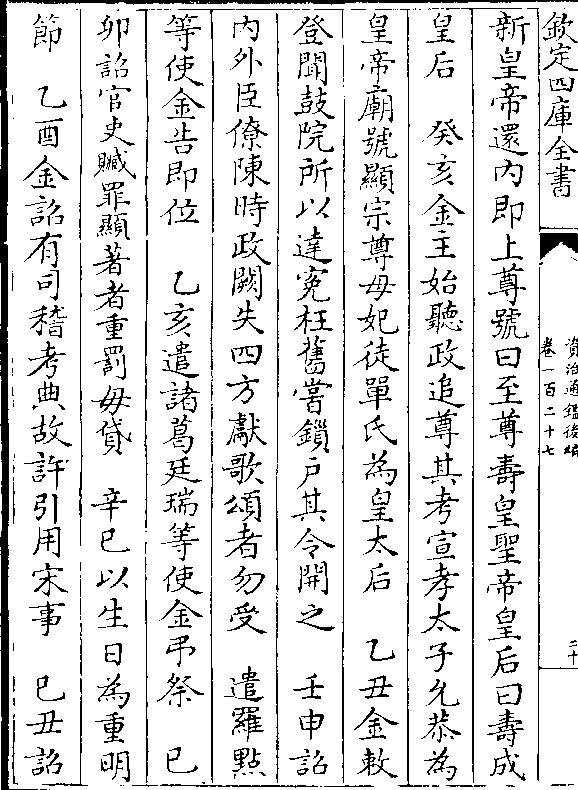 欽定四庫全書
資治通鑑後編
卷一百二十七
二十
新皇帝還内即上尊號曰至尊壽皇聖帝皇后曰壽成
皇后　癸亥金主始聽政追尊其考宣孝太子允恭為
皇帝廟號顯宗尊母妃徒單氏為皇太后　乙丑金敕
登聞鼓院所以達冤枉舊嘗鎖户其令開之　壬申詔
内外臣僚陳時政闕失四方獻歌頌者勿受　遣羅點
等使金告即位　乙亥遣諸葛廷瑞等使金弔祭　己
卯詔官吏贓罪顯著者重罰毋貸　辛巳以生日為重明
節　乙酉金詔有司稽考典故許引用宋事　己丑詔